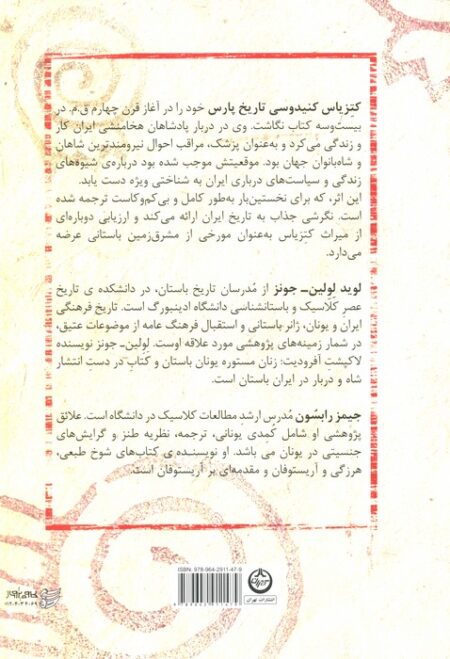 کتزیاس کنیدوسی تاریخ پارس خود را در آغاز قرن چهارم ق.م. در
بیست‌وسه کتاب نگاشت. وی در دربار پادشاهان هخامنشی ایران کار
و زندگی می‌کرد و به‌عنوان پزشک، مراقب احوال نیرومندترین شاهان
و شاه‌بانوان جهان بود. موقعیتش موجب شده بود درباره‌ی شیوه‌های
زندگی و سیاست‌های درباری ایران به شناختی ویژه دست یابد.
این اثر، که برای نخستین‌بار به‌طور کامل و بی‌کم‌وکاست ترجمه شده
است. نگرشی جذاب به تاریخ ایران ارائه می‌کند و ارزیابی دوباره‌ای
از میراث کتزیاس به‌عنوان مورخی از مشرق‌زمین باستانی عرضه
می‌دارد.
لوید لولین‌ـ جونز از مُدرسان تاریخ باستان، در دانشکده ی تاریخ
عصر کلاسیک و باستانشناسی دانشگاه ادینبورگ است. تاریخ فرهنگی
ایران و یونان، ژانر باستانی و استقبال فرهنگ عامه از موضوعات عتیق،
در شمار زمینه‌های پژوهشی مورد علاقه اوست. لولین‌ـ جونز نویسنده
لاکپشتِ آفرودیت: زنان مستوره یونان باستان و کتاب در دست انتشار
شاه و دربار در ایران باستان است.
جیمز رابسون مُدرس ارشدِ مطالعات کلاسیک در دانشگاه است. علائق
پژوهشی او شامل کمدی یونانی، ترجمه، نظریه طنز و گرایش‌های
جنسیتی در یونان می باشد. او نویسنده ی کتاب‌های شوخ طبعی،
هرزگی و آریستوفان و مقدمه‌ای بر آریستوفان است.
ISBN: 978-964-2911-47-9
انتشارات تهران